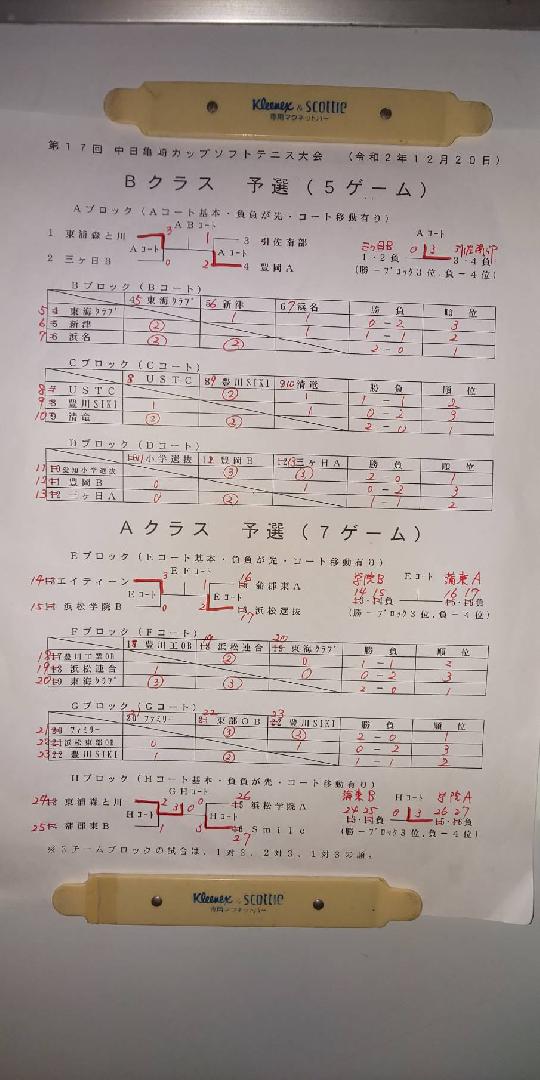 Kleenex & SCOTTIE
専用マグネットバー
第17回 中日亀崎カップソフトテニス大会 (令和2年12月20日)
Bクラス 予選(5ゲーム)
Aブロック(Aコート基本・負負が先・コート移動有り)
ABコート
Aコート
1 東浦森と川 3 1 3 引佐南部
三ヶ日B 0 3 引佐南部
Aコート
1・2負 3・4負
2 三ヶ日B 0 2 4 豊岡A
(勝-ブロック3位,負-4位)
Bブロック(Bコート)
5 東海クラブ 6 新津 7 浜名 勝 負 順 位
5 東海クラブ 1 1 0-2 3
6 新津 ② 1 1-1 2
7 浜名 ② ② 2-0 1
Cブロック(Cコート)
8 USTC 9 豊川SIKI 10 清竜 勝 負 順 位
8 USTC ② 1 1-1 2
9 豊川SIKI 1 1 0-2 3
10 清竜 ② ② 2-0 1
Dブロック(Dコート)
11 小学選抜 12 豊岡B 13 三ヶ日A 勝 負 順 位
11 愛知小学選抜 ③ ③ 2-0 1
12 豊岡B 0 1 0-2 3
13 三ヶ日A 0 ② 1-1 2
Aクラス 予選(7ゲーム)
Eブロック(Eコート基本・負負が先・コート移動有り)
EFコート
14 エイティーン 3 1 16 蒲郡東A
学院B Eコート 蒲東A
14 15 16 17
Eコート
15 浜松学院B 0 2 17 浜松選抜
(勝-ブロック3位,負-4位)
Fブロック(Fコート)
18 豊川工OB 19 浜松連合 20 東海クラブ 勝 負 順 位
18 豊川工業OB ② 0 1-1 2
19 浜松連合 1 0 0-2 3
20 東海クラブ ③ ③ 2-0 1
Gブロック(Gコート)
21 ファミリー 22 東部OB 23 豊川SIKI 勝 負 順 位
21 ファミリー ③ ③ 2-0 1
22 浜松東部OB 0 1 0-2 3
23 豊川SIKI 1 ② 1-1 2
Hブロック(Hコート基本・負負が先・コート移動有り)
GHコート
24 東浦森と川 2 3 0 0 26 浜松学院A
蒲東B Hコート 学院A
24 25 0 3 26 27
Hコート Hコート
25 蒲郡東B 1 3 27 Smile
(勝-ブロック3位,負-4位)
※3チームブロックの試合は、1対3、2対3、1対3の順。
Kleenex & SCOTTIE
専用マグネットバー